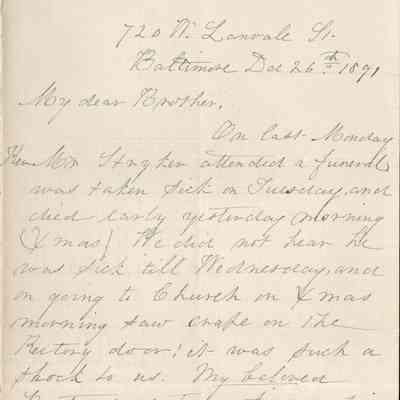 720 W. Lanvale St.
Baltimore Dec 26th 1891
My dear Brother,
On last Monday
Rev Mr Stryker attended a funeral,
was taken sick on Tuesday, and
died early yesterday morning
(Xmas). We did not hear he
was sick till Wednesday, and
on going to Church on Xmas
morning saw crape on the
Rectory door! It was such a
shock to us. My beloved